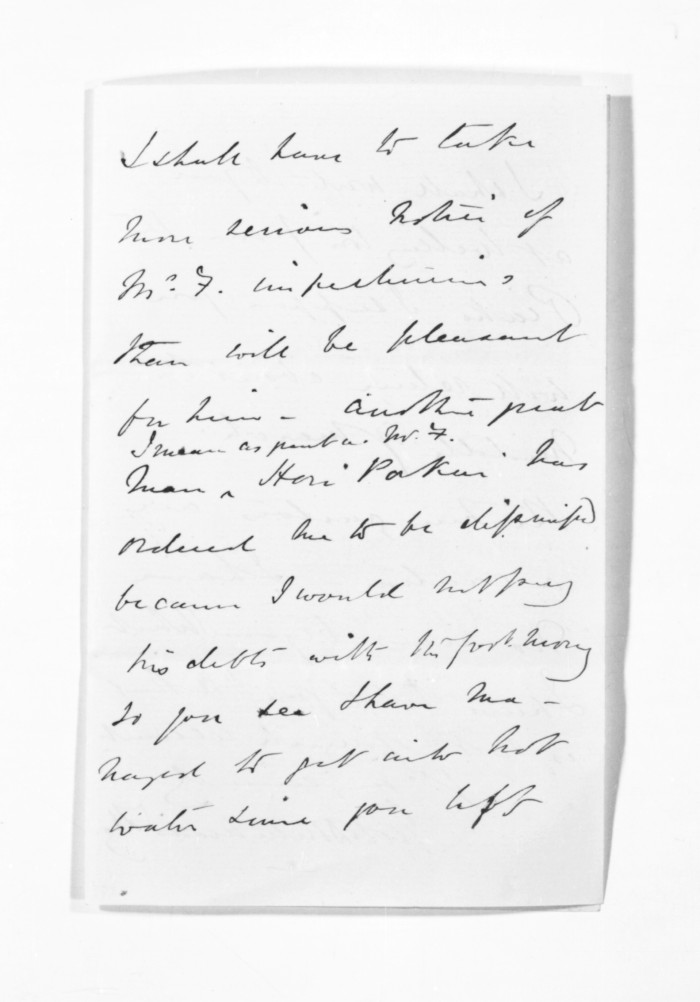 I shall have to take
more serious notice of
Mr. F. impertinences
than will be pleasant
for him - another great
I mean as great as Mr. F.
man ^ Hori Pokai has
ordered me to be dismissed
because I would not pay
his debts with the Govt. money
so you see I have ma-
naged to get into hot
water since you left